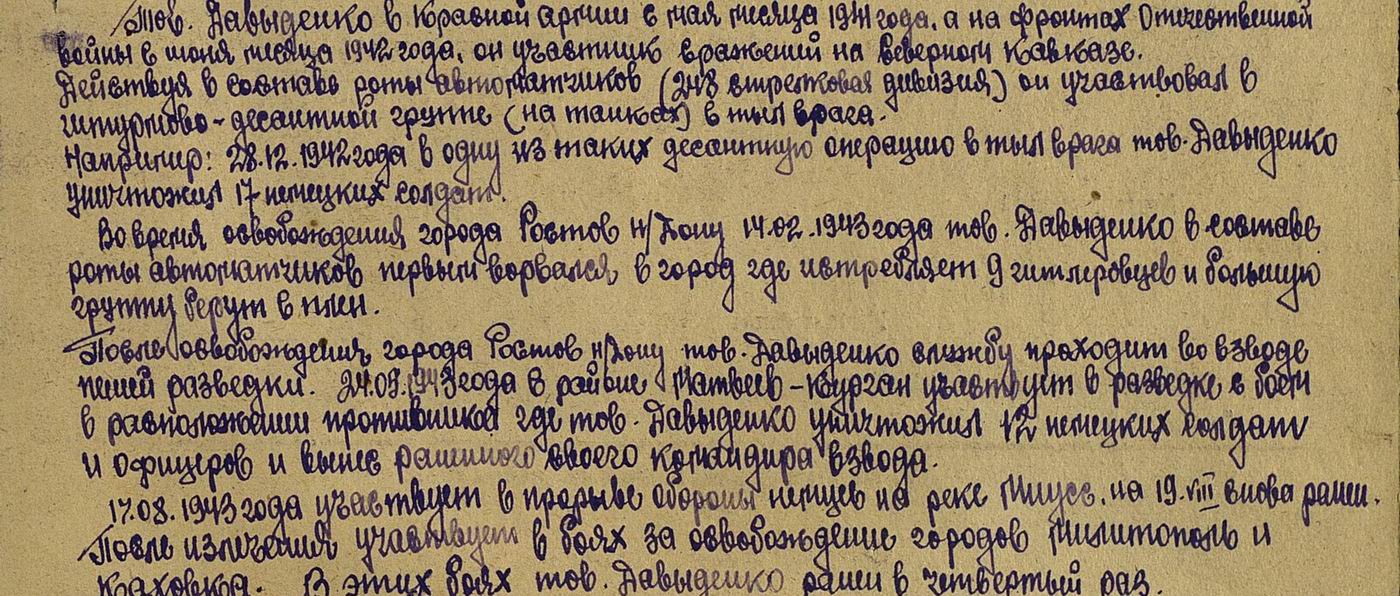 Тов. Давыденко в Красной армии с мая месяца 1941 года, а на фронтах Отечественной
войны с июня месяца 1942 года, он участник сражений на Северном Кавказе.
Действуя в составе роты автоматчиков (248 стрелковая дивизия) он участвовал в
штурмово-десантной группе (на танках) в тыл врага.
Например: 28.12.1942 года в одну из таких десантную операцию в тыл врага тов. Давыденко
уничтожил 17 немецких солдат.
Во время освобождения города Ростов н/Дону 14.02.1943 года тов. Давыденко в составе
роты автоматчиков первым ворвался в город где истребляет 9 гитлеровцев и большую
группу берут в плен.
После освобождения города Ростов н/Дону тов. Давыденко службу проходит во взводе
пешей разведки. 24.03.1943 года в районе Матвеев-Курган участвует в разведке с боем
в расположении противника где тов. Давыденко уничтожил 12 немецких солдат
и офицеров и вынес раненного своего командира взвода.
17.08.1943 года участвует в прорыве обороны немцев на реке Миусс, на 19.VIII снова ранен.
После излечения участвует в боях за освобождение городов Милитополь и
Каховка. В этих боях тов. Давыденко ранен в четвертый раз.